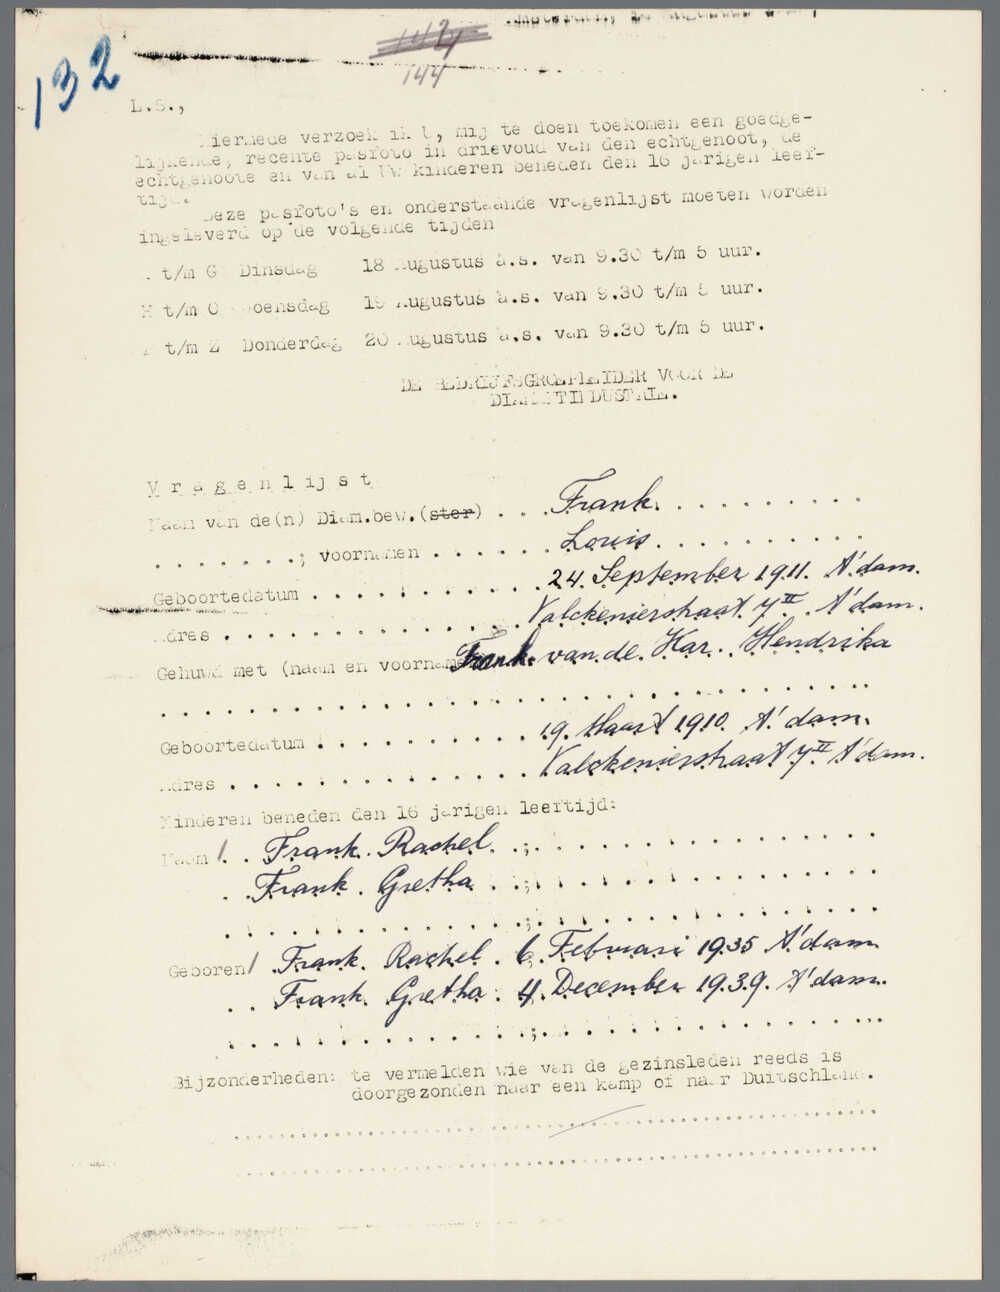 132
144
L.S.,
Hiermede verzoek ik U, mij te doen toekomen een goedge-
lijkende, recente pasfoto in drievoud van den echtgenoot, de
echtgenoote en van al Uw kinderen beneden den 16 jarigen leef-
tijd.
Deze pasfoto's en onderstaande vragenlijst moeten worden
ingeleverd op de volgende tijden
t/m G Dinsdag 18 Augustus a.s. van 9.30 t/m 5 uur.
H t/m O Woensdag 19 Augustus a.s. van 9.30 t/m 5 uur.
t/m Z Donderdag 20 Augustus a.s. van 9.30 t/m 5 uur.
DE BEDRIJFSGROEPLEIDER VOOR DE
DIAMANTINDUSTRIE.
Vragenlijst
Naam van de(n) Diam.bew.(ster) . . . Frank. . . . . . . . .
. . . . . . . ; voornamen . . . . . . Louis. . . . . . . . . .
Geboortedatum . . . . . . . . . . . 24. September 1911. A'dam.
Adres . . . . . . . . . . . . . . Valckenierstraat 7 II. A'dam.
Gehuwd met (naam en voornamen Frank. van.de. Kar. Hendrika
. . . . . . . . . . . . . . . . . . . . . . . . . . . . . . .
Geboortedatum . . . . . . . . . . . 19. Maart 1910. A'dam.
Adres . . . . . . . . . . . . . . Valckenierstraat 7 II A'dam.
Kinderen beneden den 16 jarigen leeftijd:
Naam 1. . Frank. Rachel. . ; . . . . . . . . . . . . . .
. . Frank. Gretha . . ; . . . . . . . . . . . . . .
. . . . . . . . . . . . . . ; . . . . . . . . . . . . . .
Geboren 1 Frank. Rachel. 6. Februari 1935 A'dam.
. . Frank. Gretha. 4. December 1939. A'dam.
. . . . . . . . . . . . . . ; . . . . . . . . . . . . . .
Bijzonderheden: te vermelden wie van de gezinsleden reeds is
doorgezonden naar een kamp of naar Duitschland.